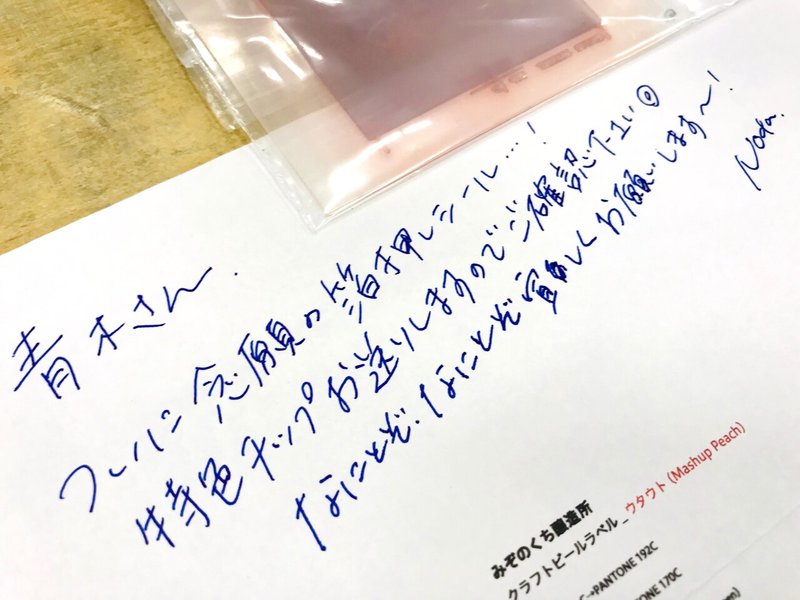 青木さん.
ついに念願の箔押しシール…!
特色チップお送りしますのでご確認下さい◎
なにとぞ.なにとぞ宜しくお願いします〜!
Noda.
みぞのくち醸造所
クラフトビールラベル_ウタウト (Mashup Peach)
C→PANTONE 192C
PANTONE 170C